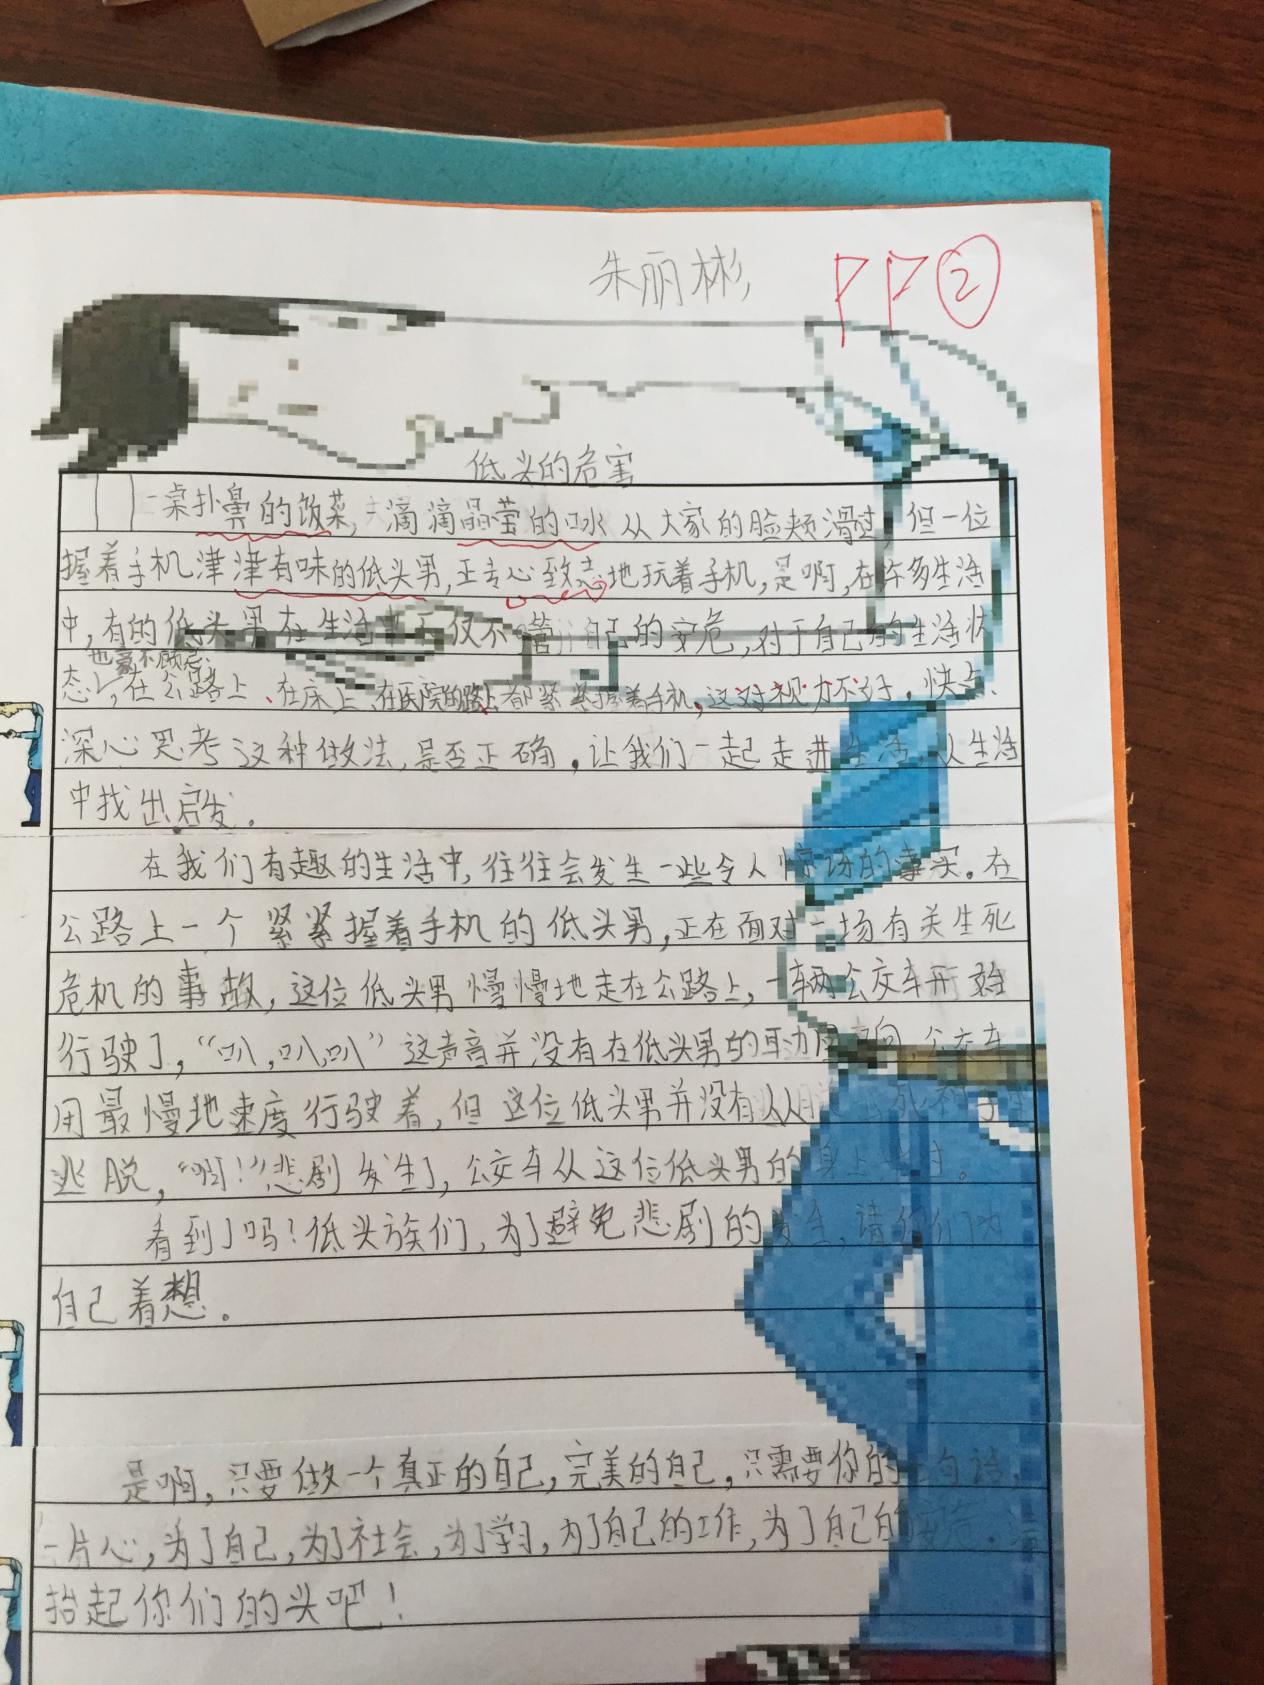 朱丽彬
PP②
低头的危害
一桌扑鼻的饭菜,一滴滴晶莹的口水从大家的脸颊滑过,但一位
握着手机津津有味的低头男,正专心致志地玩着手机,是啊,在许多生活
中,有的低头男在生活中不仅不管自己的安危,对于自己的生活状
也毫不顾忌
态,在公路上、在床上、在医院的路上都紧紧握着手机,这对视力不好。快点、
深心思考这种做法,是否正确。让我们一起走进生活,从生活
中找出启发。
在我们有趣的生活中,往往会发生一些令人惊讶的事实。在
公路上一个紧紧握着手机的低头男,正在面对一场有关生死
危机的事故,这位低头男慢慢地走在公路上,一辆公交车开始
行驶了,“叭,叭,叭”这声音并没有在低头男的耳边回响,公交车
用最慢地速度行驶着,但这位低头男并没有从
逃脱,“啊!”悲剧发生了,公交车从这位低头男的身上
看到了吗!低头族们,为了避免悲剧的发生,请你们为
自己着想。
是啊,只要做一个真正的自己,完美的自己,只需要你的一句话,
一片心,为了自己,为了社会,为了学习,为了自己的工作,为了自己的安危。请
抬起你们的头吧!